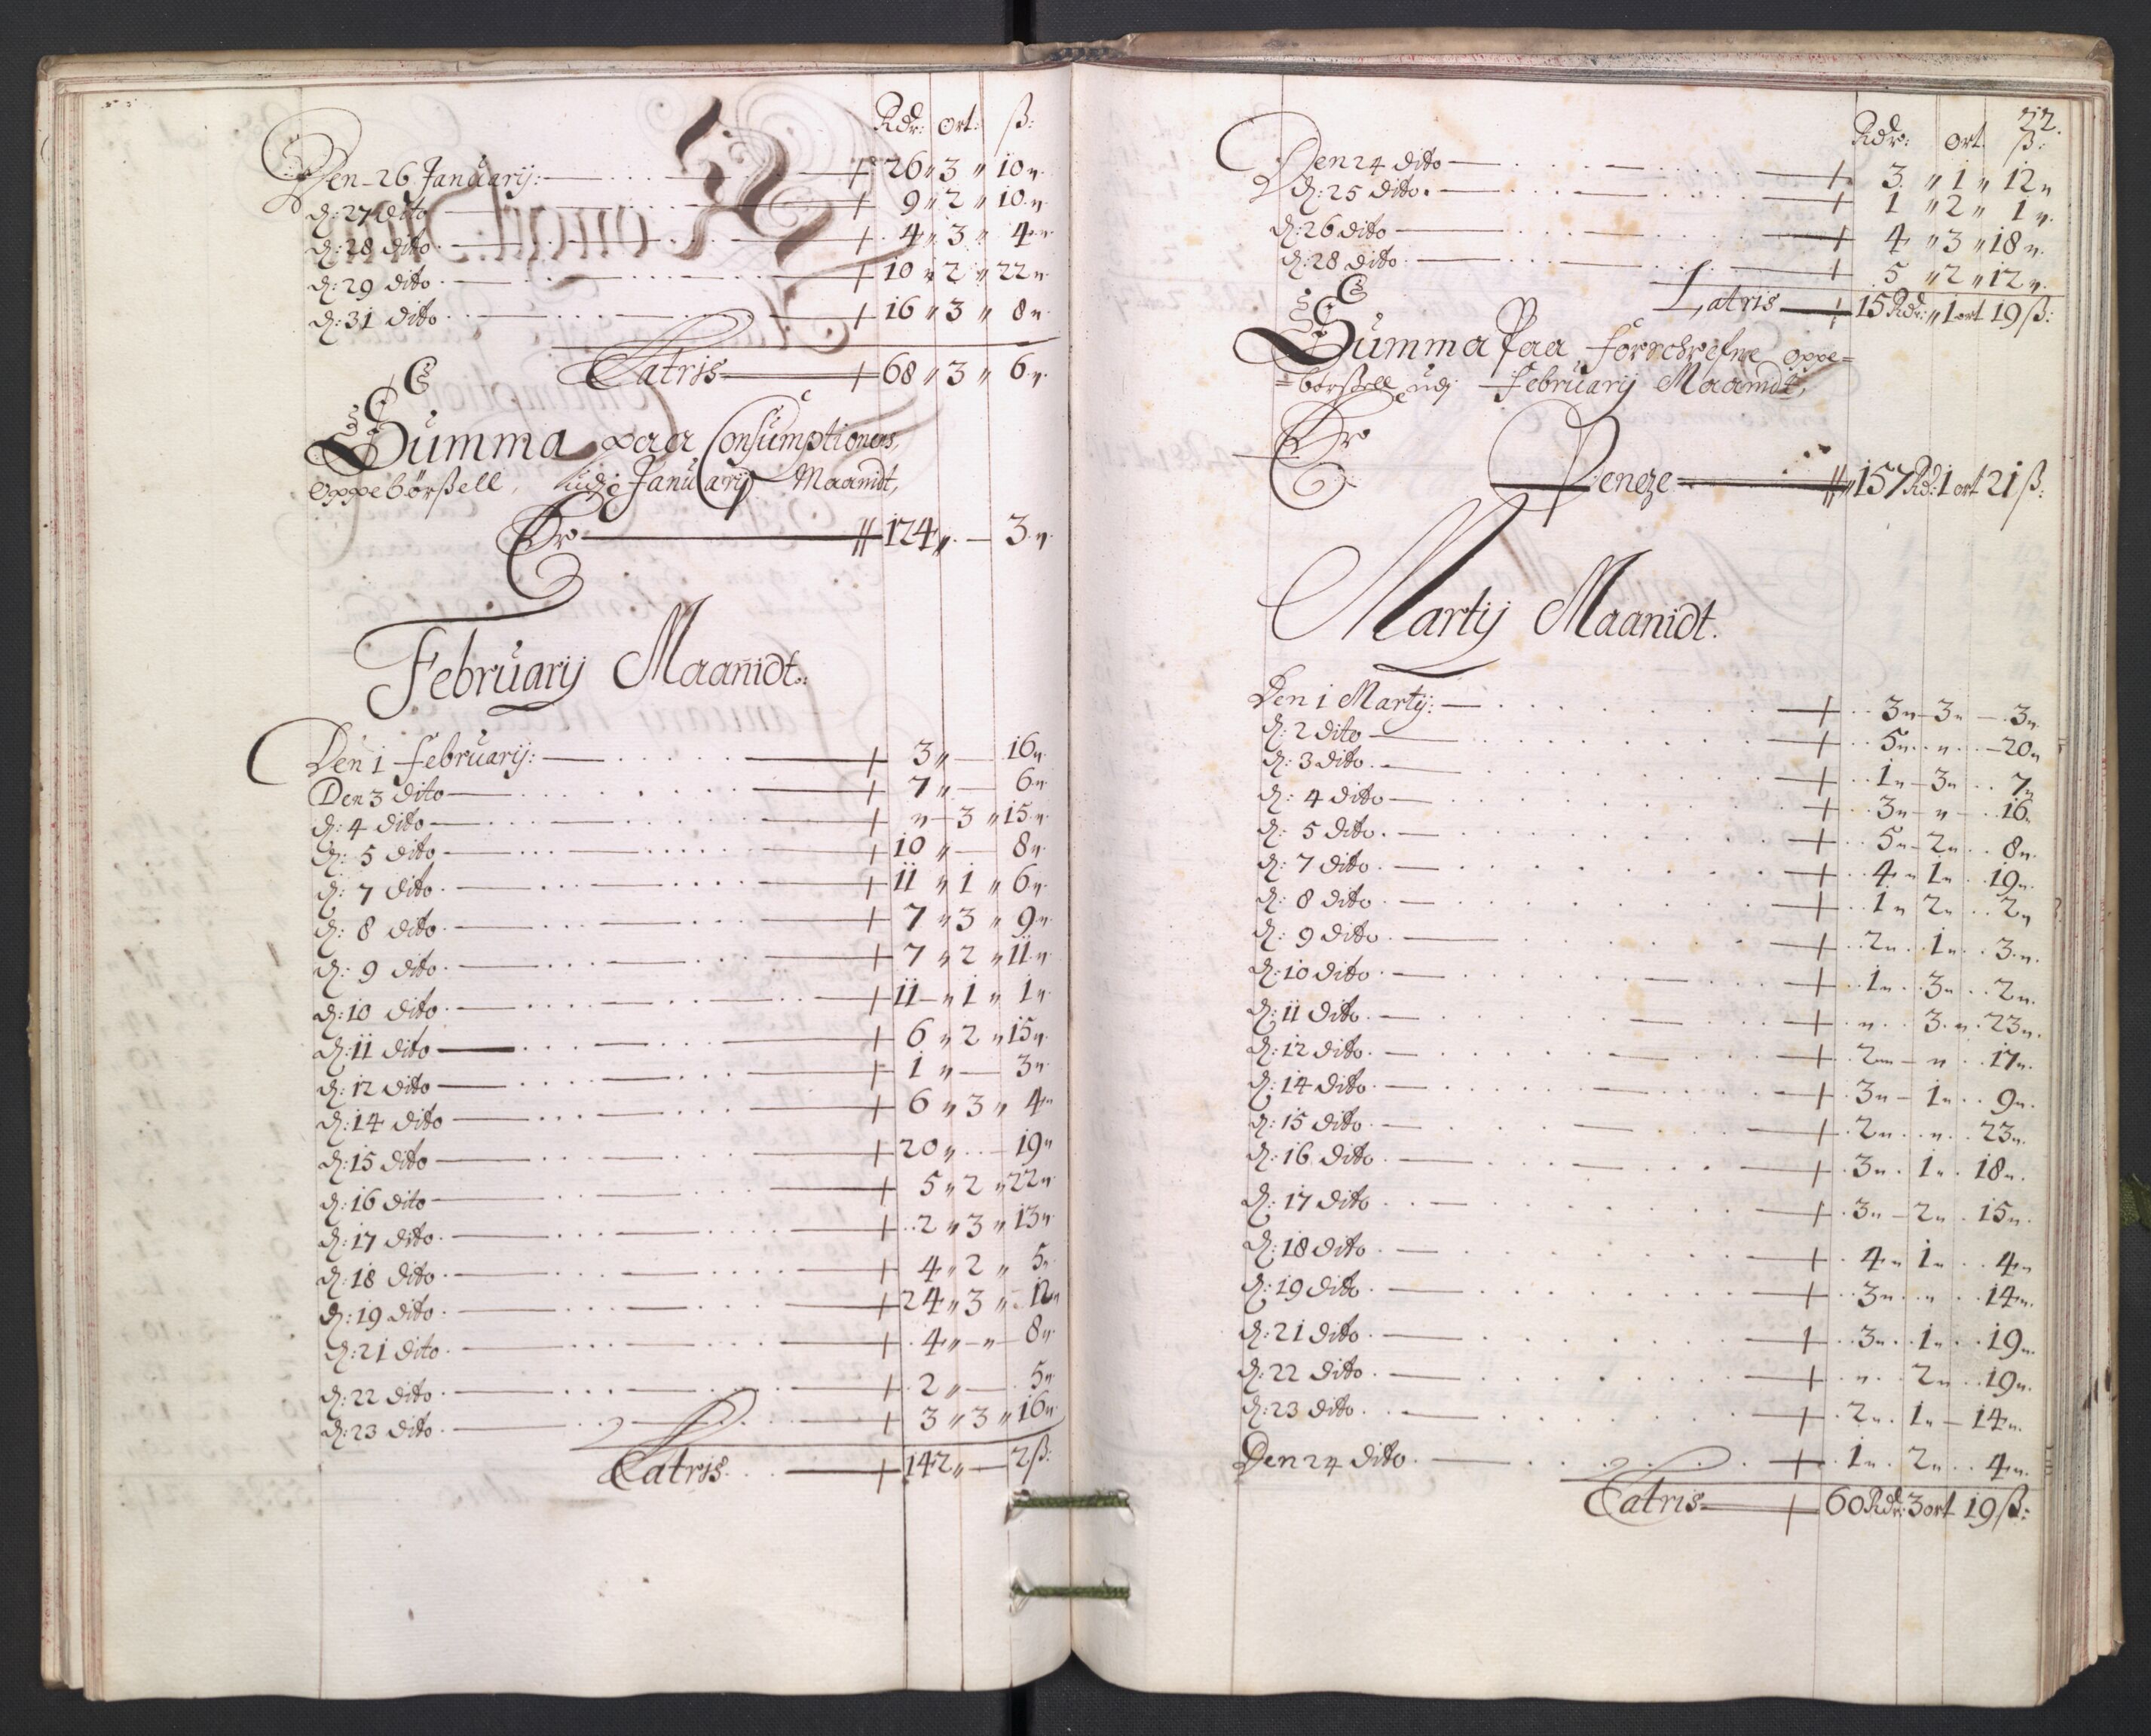 Rdr: ort: ß:
Den 26 Januarij: 26 " 3 " 10 "
d: 27 dito 9 " 2 " 10 "
d: 28 dito 4 " 3 " 4 "
d: 29 dito 10 " 2 " 22 "
d: 31 dito 16 " 3 " 8 "
Latris 68 " 3 " 6 "
Summa paa Consumptionens
oppebörßell, udj Januarij Maanidt,
Er 124 " — 3 "
Februarij Maanidt.
Den 1 Februarij: 3 " — 16 "
Den 3 dito 7 " — 6 "
d: 4 dito " — 3 " 15 "
d: 5 dito 10 " — 8 "
d: 7 dito 11 " 1 " 6 "
d: 8 dito 7 " 3 " 9 "
d: 9 dito 7 " 2 " 11 "
d: 10 dito 11 " 1 " 1 "
d: 11 dito 6 " 2 " 15 "
d: 12 dito 1 " — 3 "
d: 14 dito 6 " 3 " 4 "
d: 15 dito 20 " — 19 "
d: 16 dito 5 " 2 " 22 "
d: 17 dito 2 " 3 " 13 "
d: 18 dito 4 " 2 " 5 "
d: 19 dito 24 " 3 " 12 "
d: 21 dito 4 " — " — 8 "
d: 22 dito 2 " — 5 "
d: 23 dito 3 " 3 " 16 "
Latris 142 " — 2 ß:
22.
Rdr: ort ß:
Den 24 dito 3 " 1 " 12 "
d: 25 dito 1 " 2 " 1 "
d: 26 dito 4 " 3 " 18 "
d: 28 dito 5 " 2 " 12 "
Latris 15 Rdr: " 1 ort 19 ß:
Summa Paa forschrefne oppe=
=börßell udj Februarij Maanidt,
Er
Penge 157 Rd: 1 ort 21 ß:
Martij Maanidt.
Den 1 Martij: 3 " 3 " 3 "
d: 2 dito 5 " " 20 "
d: 3 dito 1 " 3 " 7 "
d: 4 dito 3 " " 16
d: 5 dito 5 " 2 " 8 "
d: 7 dito 4 " 1 " 19 "
d: 8 dito 1 " 2 " 2 "
d: 9 dito 2 " 1 " 3 "
d: 10 dito 1 " 3 " 2 "
d: 11 dito " 3 " 23 "
d: 12 dito 2 " " 17 "
d: 14 dito 3 " 1 " 9 "
d: 15 dito 2 " " 23 "
d: 16 dito 3 " 1 " 18 "
d: 17 dito 3 " 2 " 15 "
d: 18 dito 4 " 1 " 4 "
d: 19 dito 3 " " 14 "
d: 21 dito 3 " 1 " 19 "
d: 22 dito " 2 " 19 "
d: 23 dito 2 " 1 " 14 "
Den 24 dito 1 " 2 " 4 "
Latris 60 Rdr: 3 ort 19 ß: